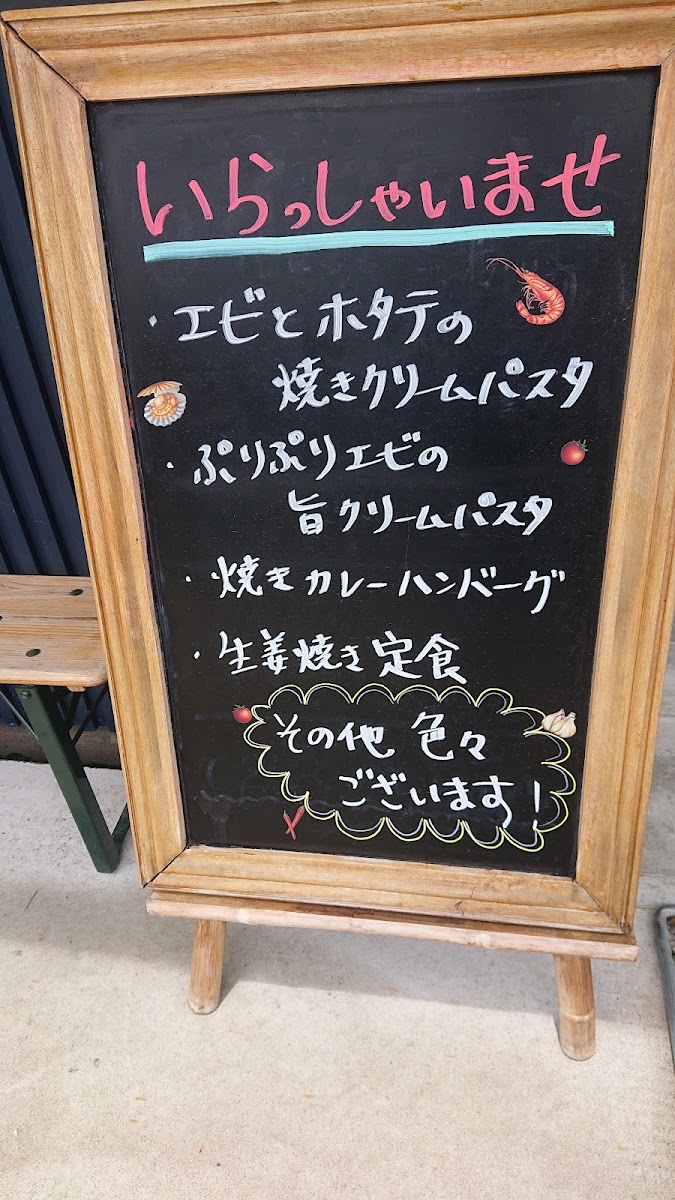 いらっしゃいませ
・エビとホタテの
焼きクリームパスタ
・ぷりぷりエビの
旨クリームパスタ
・焼きカレーハンバーグ
・生姜焼き定食
その他 色々
ございます!